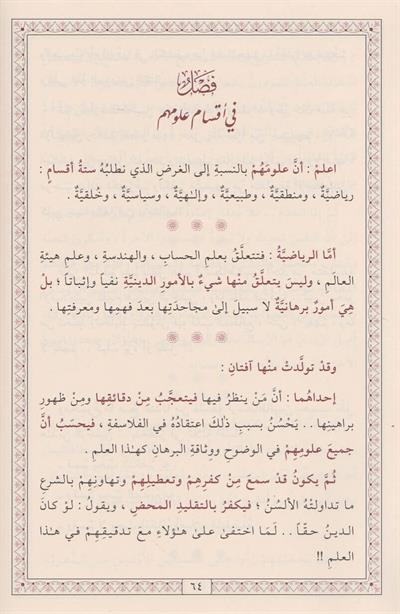 فَصْلٌ
في أقسام علومهم
اعلمْ : أنَّ علومَهُمْ بالنسبةِ إلى الغرضِ الذي نطلبُهُ ستةُ أقسامٍ :
رياضيَّةٌ ، ومنطقيَّةٌ ، وطبيعيَّةٌ ، وإلـٰهيَّةٌ ، وسياسيَّةٌ ، وخُلقيَّةٌ .
أمَّا الرياضيَّةُ : فتتعلَّقُ بعلمِ الحسابِ ، والهندسةِ ، وعلمِ هيئةِ
العالَمِ ، وليسَ يتعلَّقُ منْها شيءٌ بالأمورِ الدينيَّةِ نفياً وإثباتاً ؛ بلْ
هيَ أمورٌ برهانيَّةٌ لا سبيلَ إلىٰ مجاحدَتِها بعدَ فهمِها ومعرفتِها .
وقدْ تولَّدتْ منْها آفتانِ :
إحداهُما : أنَّ مَنْ ينظرُ فيها فيتعجَّبُ مِنْ دقائقِها ومِنْ ظهورِ
براهينِها . . يَحْسُنُ بسببِ ذٰلكَ اعتقادُهُ في الفلاسفةِ ، فيحسَبُ أنَّ
جميعَ علومِهِمْ في الوضوحِ ووِثاقةِ البرهانِ كهـٰذا العلمِ .
ثُمَّ يكونُ قدْ سمعَ مِنْ كفرِهِمْ وتعطيلِهِمْ وتهاونِهِمْ بالشرعِ
ما تداولَتْهُ الألسُنُ ؛ فيكفرُ بالتقليدِ المحضِ ، ويقولُ : لوْ كانَ
الدينُ حقّاً . . لَمَا اختفىٰ علىٰ هـٰؤلاءِ معَ تدقيقِهِمْ في هـٰذا
العلمِ !!
٦٤